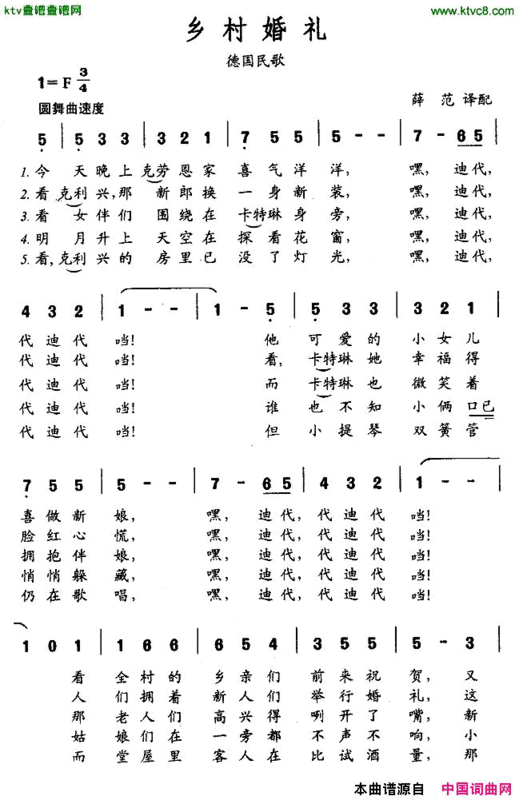 ktv查谱查谱网
www.ktvc8.com
乡村婚礼
德国民歌
1=F 3/4
圆舞曲速度
薛 范 译配
5 | 5 3 3 | 3 2 1 | 7 5 5 | 5 - - | 7 - 6 5 |
1. 今 天晚上克劳恩家喜气洋洋, 嘿, 迪代,
2. 看克利兴,那新郎换一身新装, 嘿, 迪代,
3. 看 女伴们围绕在卡特琳身旁, 嘿, 迪代,
4. 明 月升上天空在探看花窗, 嘿, 迪代,
5. 看,克利兴的房里已没了灯光, 嘿, 迪代,
4 3 2 | 1 - - | 1 - 5 | 5 3 3 | 3 2 1 |
代迪代 哨! 他 可爱的 小女儿
代迪代 哨! 看, 卡特琳她 幸福得
代迪代 哨! 而 卡特琳也 微笑着
代迪代 哨! 谁 也不知 小俩口已
代迪代 哨! 但 小提琴 双簧管
7 5 5 | 5 - - | 7 - 6 5 | 4 3 2 | 1 - - |
喜做新 娘, 嘿, 迪代, 代迪代 哨!
脸红心 慌, 嘿, 迪代, 代迪代 哨!
拥抱伴 娘, 嘿, 迪代, 代迪代 哨!
悄悄躲 藏, 嘿, 迪代, 代迪代 哨!
仍在歌 唱, 嘿, 迪代, 代迪代 哨!
1 0 1 | 1 6 6 | 6 4 4 | 3 5 5 | 5 - 3 |
看 全村的 乡亲们 前来祝 贺, 又
人 们拥着 新人们 举行婚 礼, 这
那 老人们 高兴得 咧开了 嘴, 新
姑 娘们在 一旁都 不声不 响, 小
而 堂屋里 客人在 比试酒 量, 那
本曲谱源自 中国词曲网